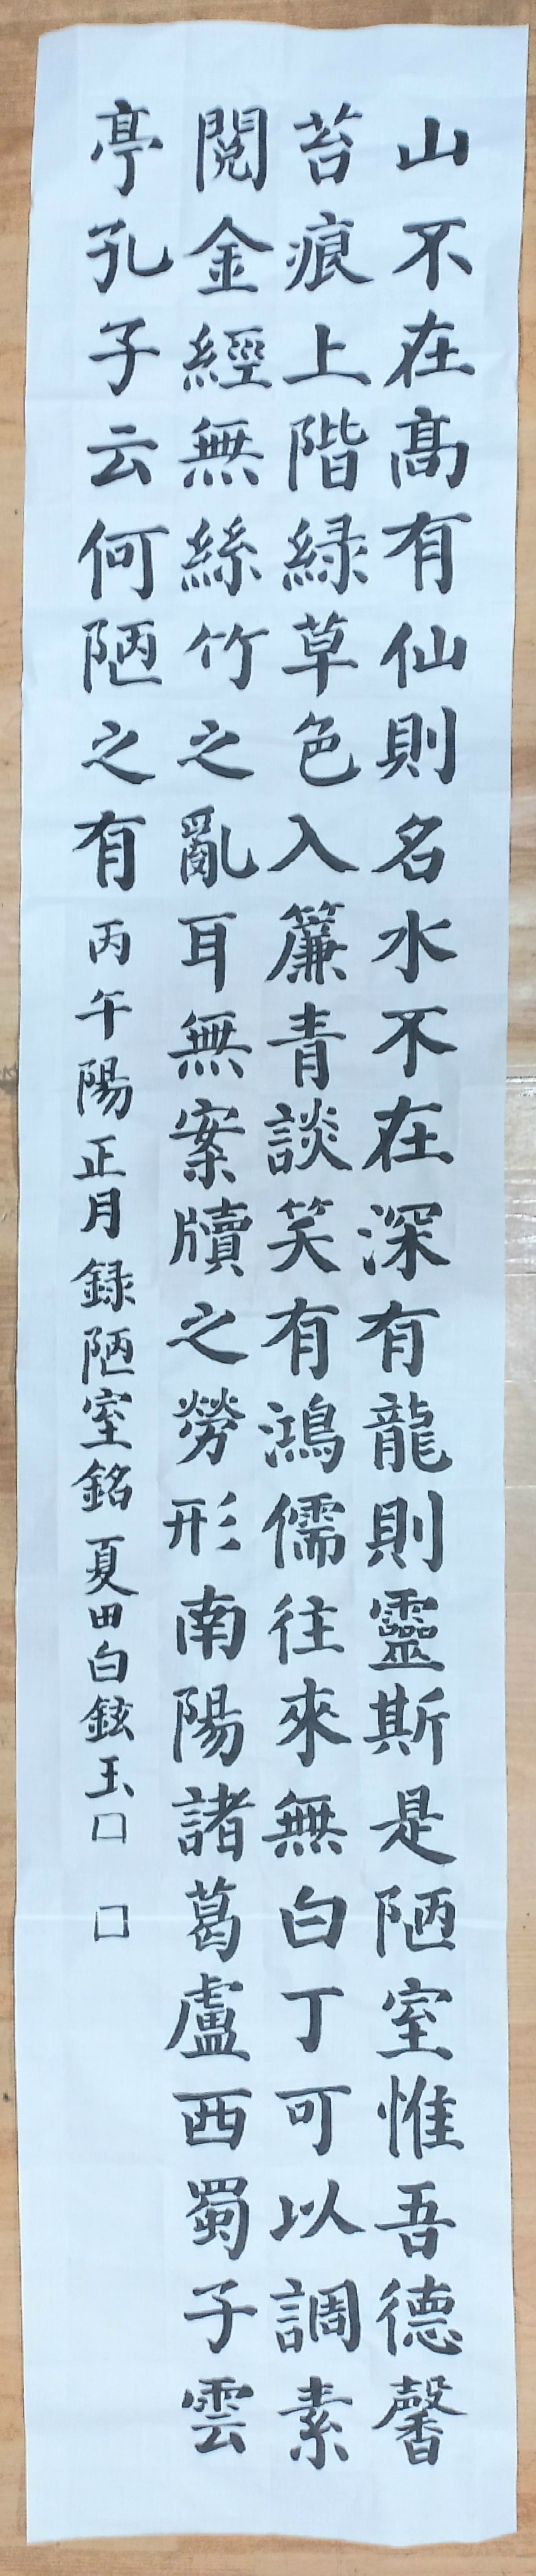 山不在髙有仙則名水不在深有龍則靈斯是陋室惟吾德馨
苔痕上階緑草色入簾青談笑有鴻儒往來無白丁可以調素
閱金經無絲竹之亂耳無案牘之勞形南陽諸葛盧西蜀子雲
亭孔子云何陋之有 丙午陽正月録陋室銘 夏田白鉉玉□ □